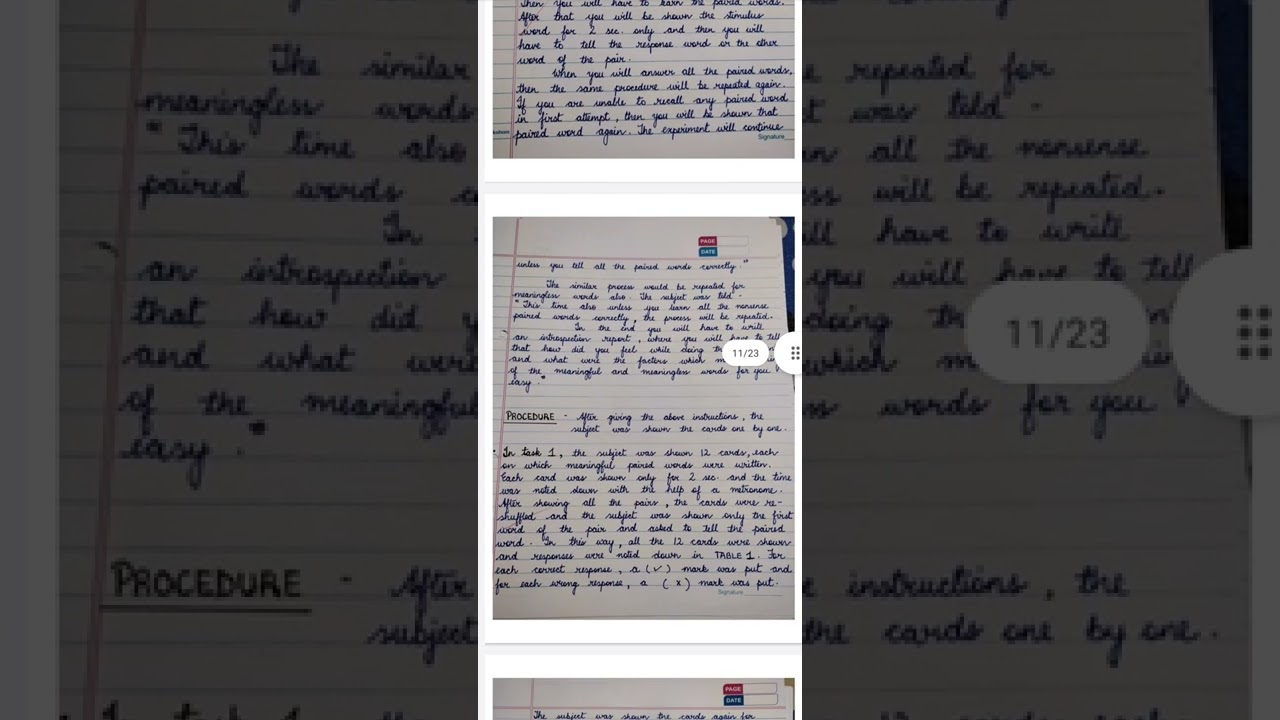 Then you will have to learn the paired words.
After that you will be shown the stimulus
word for 2 sec. only and then you will
have to tell the response word or the other
word of the pair.
When you will answer all the paired words,
then the same procedure will be repeated again.
If you are unable to recall any paired word
in first attempt, then you will be shown that
paired word again. The experiment will continue
Signature
PAGE
DATE
unless you tell all the paired words correctly."
The similar process would be repeated for
meaningless words also. The subject was told -
"This time also unless you learn all the nonsense
paired words correctly, the process will be repeated.
In the end you will have to write
an introspection report, where you will have to tell
that how did you feel while doing
and what were the factors which
of the meaningful and meaningless words for you
easy."
11/23
PROCEDURE - After giving the above instructions, the
subject was shown the cards one by one.
• In task 1, the subject was shown 12 cards, each
on which meaningful paired words were written.
Each card was shown only for 2 sec. and the time
was noted down with the help of a metronome.
After showing all the pairs, the cards were re-
shuffled and the subject was shown only the first
word of the pair and asked to tell the paired
word. In this way, all the 12 cards were shown
and responses were noted down in TABLE 1. For
each correct response, a (✓) mark was put and
for each wrong response, a (x) mark was put.
Signature
PAGE
DATE
The subject was shown the cards again for